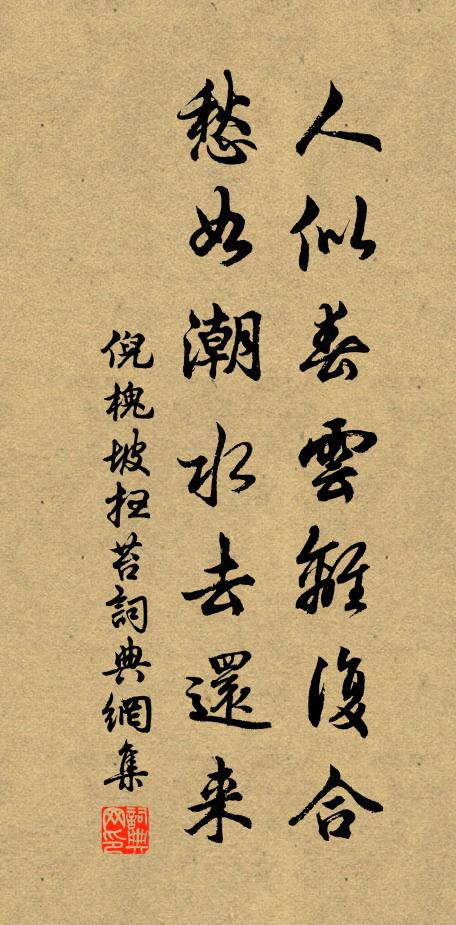 人似春雲離復合
愁如潮水去還来
倪槐坡扫苔詞典網集
詞典网印